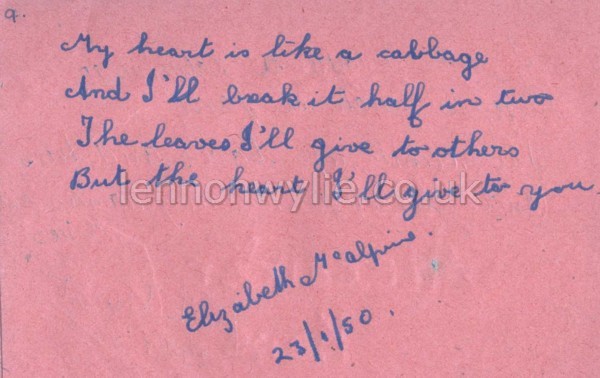 9.
My heart is like a cabbage
And I'll break it half in two
The leaves I'll give to others
But the heart I'll give to you.
lennonwylie.co.uk
Elizabeth McAlpine.
23/1/50.